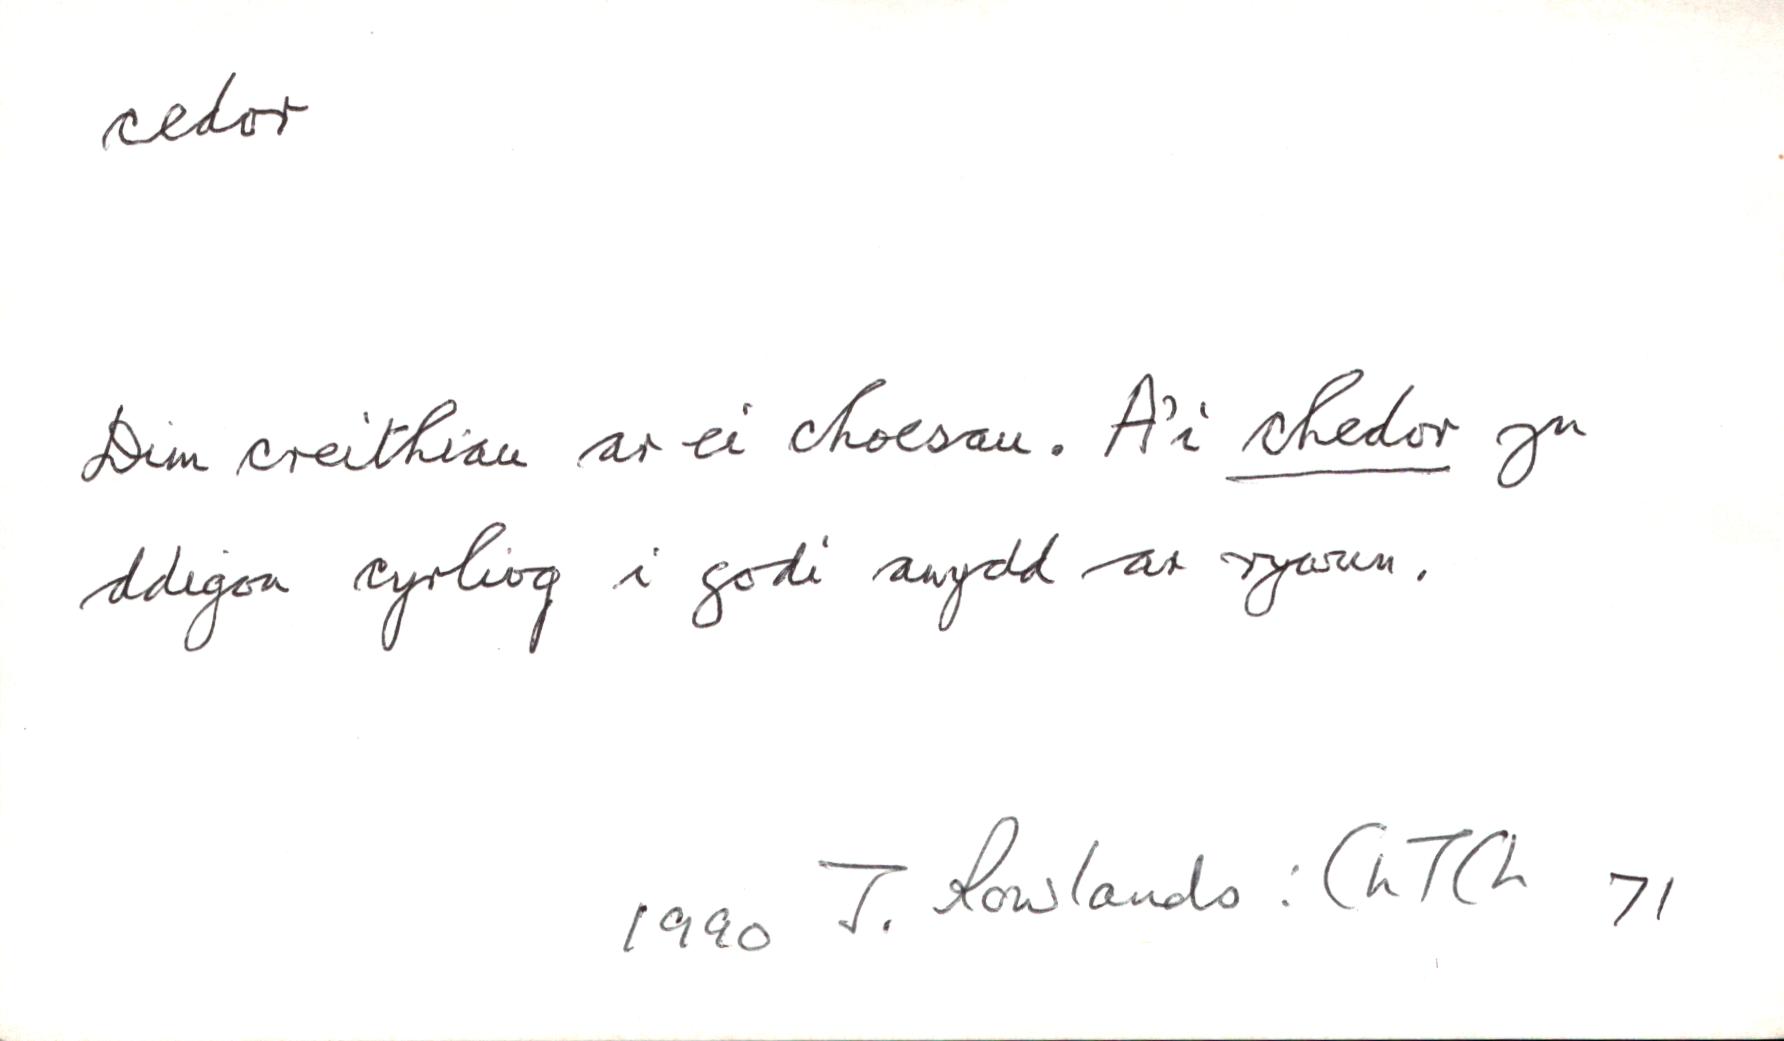 cedor
Dim creithiau ar ei choesau. A'i chedor yn
ddigon cyrliog i godi awydd ar rywun.
1990 J. Rowlands : ChTCh 71